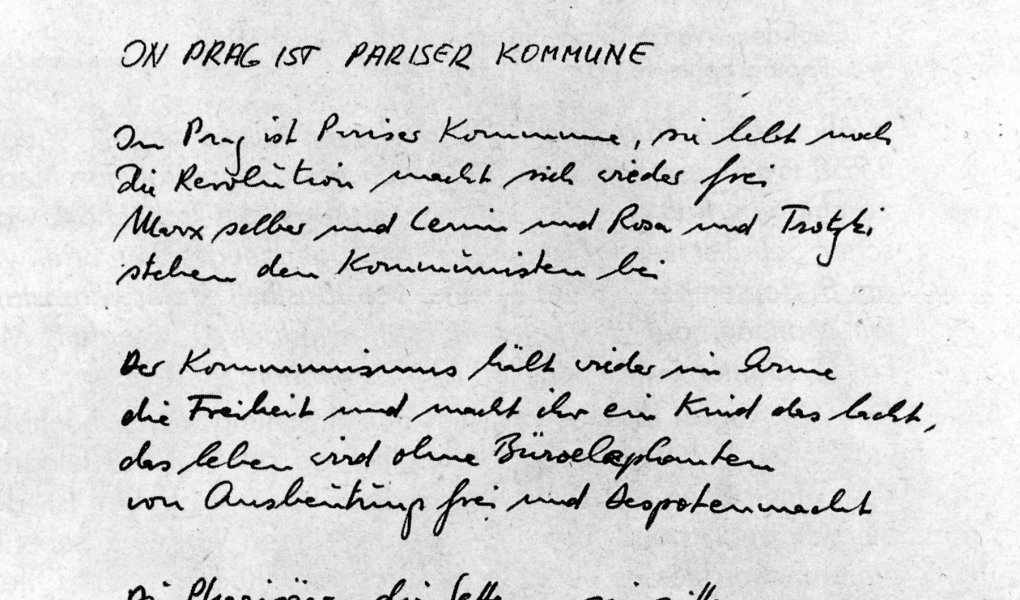 IN PRAG IST PARISER KOMMUNE
In Prag ist Pariser Kommune, sie lebt noch
Die Revolution macht sich wieder frei
Marx selber und Lenin und Rosa und Trotzki
stehen den Kommunisten bei
Der Kommunismus hält wieder im Arme
die Freiheit und macht ihr ein Kind das lacht,
das Leben wird ohne Büroelephanten
von Ausbeutung frei und Despotenmacht
Die Pharisäer, die